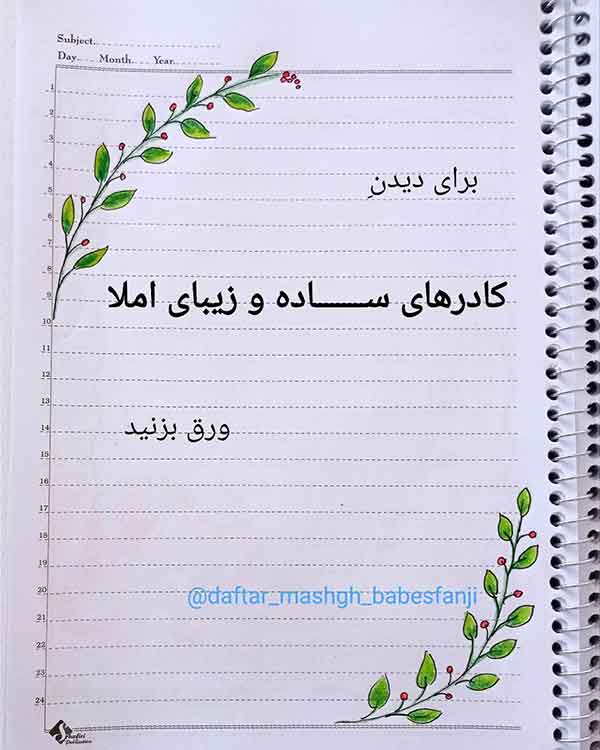 Subject
Day Month Year
1
2
3
4
برای دیدنِ
5
6
7
8
کادرهای ســـــاده و زیبای املا
9
10
11
12
13
ورق بزنید
14
15
16
17
18
19
20
@daftar_mashgh_babesfanji
21
22
23
24